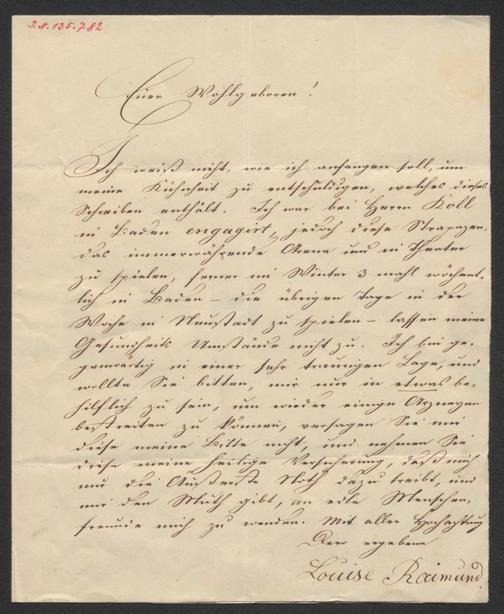 I.N. 135.782
Euer Wohlgeboren!
Ich weiß nicht, wie ich anfangen soll, um
meine Kühnheit zu entschuldigen, welches dieses
Schreiben enthält. Ich war bei Herrn Köll
in Baden engagirt, jedoch diese Strapazen,
das immerwährende Arena und in Theater
zu spielen, ferner im Winter 3 mahl wöchent-
lich in Baden – die übrigen Tage in der
Woche in Neustadt zu spielen – lassen meine
Gesundheits Umstände nicht zu. Ich bin ge-
genwärtig in einer sehr traurigen Lage, und
wollte Sie bitten, mir nur in etwas be-
hilflich zu sein, um wieder einige Arzneyen
bestreiten zu können, versagen Sie mir
diese meine Bitte nicht, und nehmen Sie
diese meine heilige Versicherung, daß mich
nur die Äußerste Noth dazu treibt, und
mir den Muth gibt, an edle Menschen-
freunde mich zu wenden. Mit aller Hochachtung
Dero ergebene
Louise Raimund.